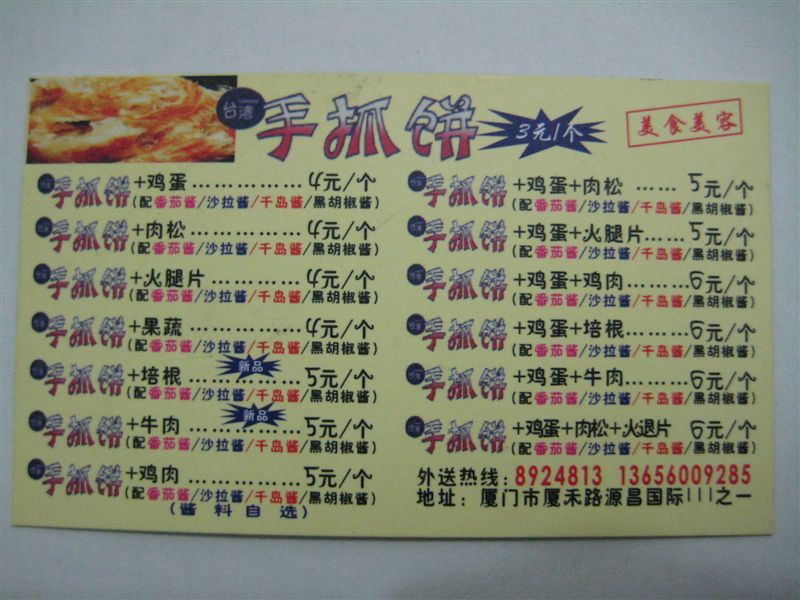 台湾 手抓饼 3元1个
美食美容
手抓饼+鸡蛋……………4元/个
(配番茄酱/沙拉酱/千岛酱/黑胡椒酱)
手抓饼+肉松……………4元/个
(配番茄酱/沙拉酱/千岛酱/黑胡椒酱)
手抓饼+火腿片…………4元/个
(配番茄酱/沙拉酱/千岛酱/黑胡椒酱)
手抓饼+果蔬……………4元/个
(配番茄酱/沙拉酱/千岛酱/黑胡椒酱)
新品
手抓饼+培根……………5元/个
(配番茄酱/沙拉酱/千岛酱/黑胡椒酱)
新品
手抓饼+牛肉……………5元/个
(配番茄酱/沙拉酱/千岛酱/黑胡椒酱)
手抓饼+鸡肉……………5元/个
(配番茄酱/沙拉酱/千岛酱/黑胡椒酱)
(酱料自选)
手抓饼+鸡蛋+肉松……5元/个
(配番茄酱/沙拉酱/千岛酱/黑胡椒酱)
手抓饼+鸡蛋+火腿片……5元/个
(配番茄酱/沙拉酱/千岛酱/黑胡椒酱)
手抓饼+鸡蛋+鸡肉………6元/个
(配番茄酱/沙拉酱/千岛酱/黑胡椒酱)
手抓饼+鸡蛋+培根………6元/个
(配番茄酱/沙拉酱/千岛酱/黑胡椒酱)
手抓饼+鸡蛋+牛肉………6元/个
(配番茄酱/沙拉酱/千岛酱/黑胡椒酱)
手抓饼+鸡蛋+肉松+火退片 6元/个
(配番茄酱/沙拉酱/千岛酱/黑胡椒酱)
外送热线:8924813 13656009285
地址:厦门市厦禾路源昌国际111之一